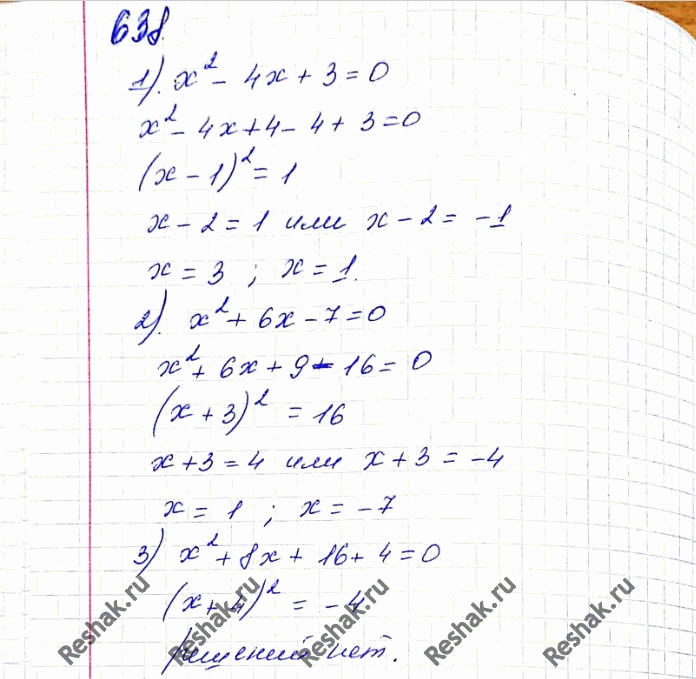 638.
1). x² - 4x + 3 = 0
x² - 4x + 4 - 4 + 3 = 0
(x - 1)² = 1
x - 2 = 1 или x - 2 = -1
x = 3 ; x = 1.
2). x² + 6x - 7 = 0
x² + 6x + 9 - 16 = 0
(x + 3)² = 16
x + 3 = 4 или x + 3 = -4
x = 1 ; x = -7
3) x² + 8x + 16 + 4 = 0
(x + 4)² = -4
Решений нет.
Reshak.ru Reshak.ru Reshak.ru Reshak.ru Reshak.ru